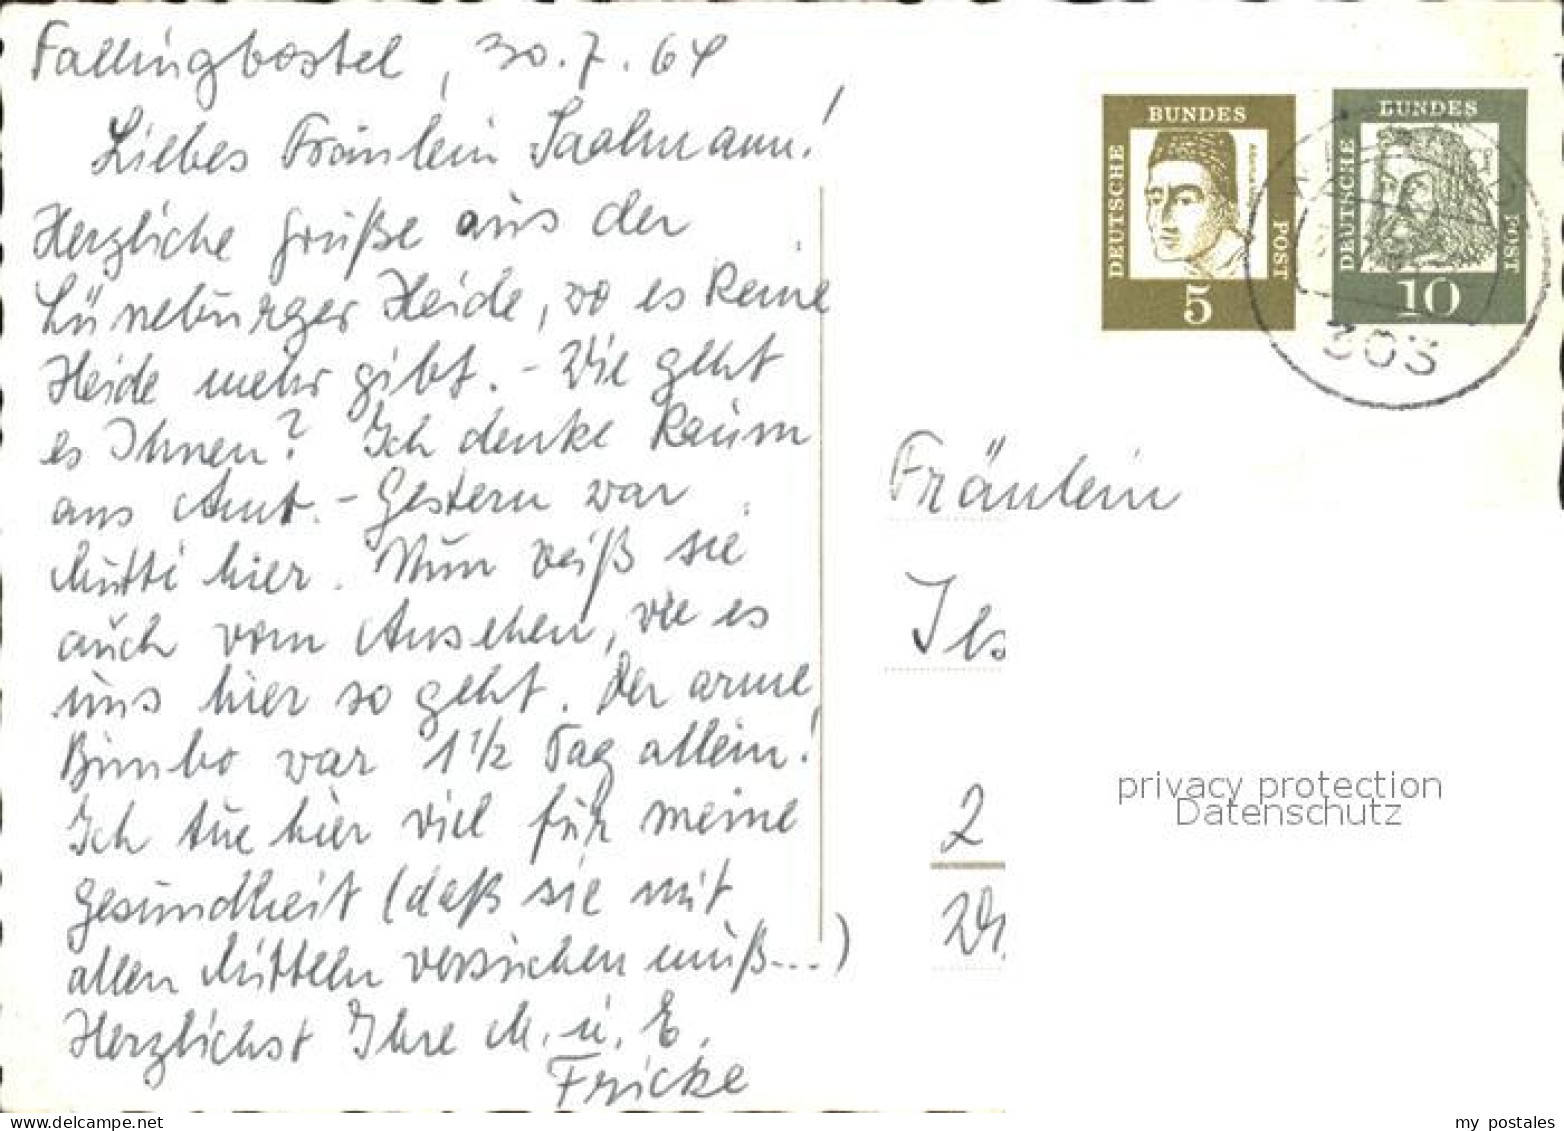 Fallingbostel, 30.7.64
Liebes Fräulein Saalmann!
Herzliche Grüße aus der
Lüneburger Heide, wo es keine
Heide mehr gibt. - Wie geht
es Ihnen? Ich denke kaum
ans Amt. - Gestern war
Mutti hier. Nun weiß sie
auch vom Ansehen, wie es
uns hier so geht. Der arme
Bimbo war 1 1/2 Tag allein!
Ich tue hier viel für meine
Gesundheit (daß sie mit
allen Mitteln versuchen muß...)
Herzlichst Ihre M. u. E.
Fricke
BUNDES
DEUTSCHE
POST
5
BUNDES
DEUTSCHE
POST
10
303
Fräulein
Ils
2
privacy protection
Datenschutz
delcampe.net
my postales